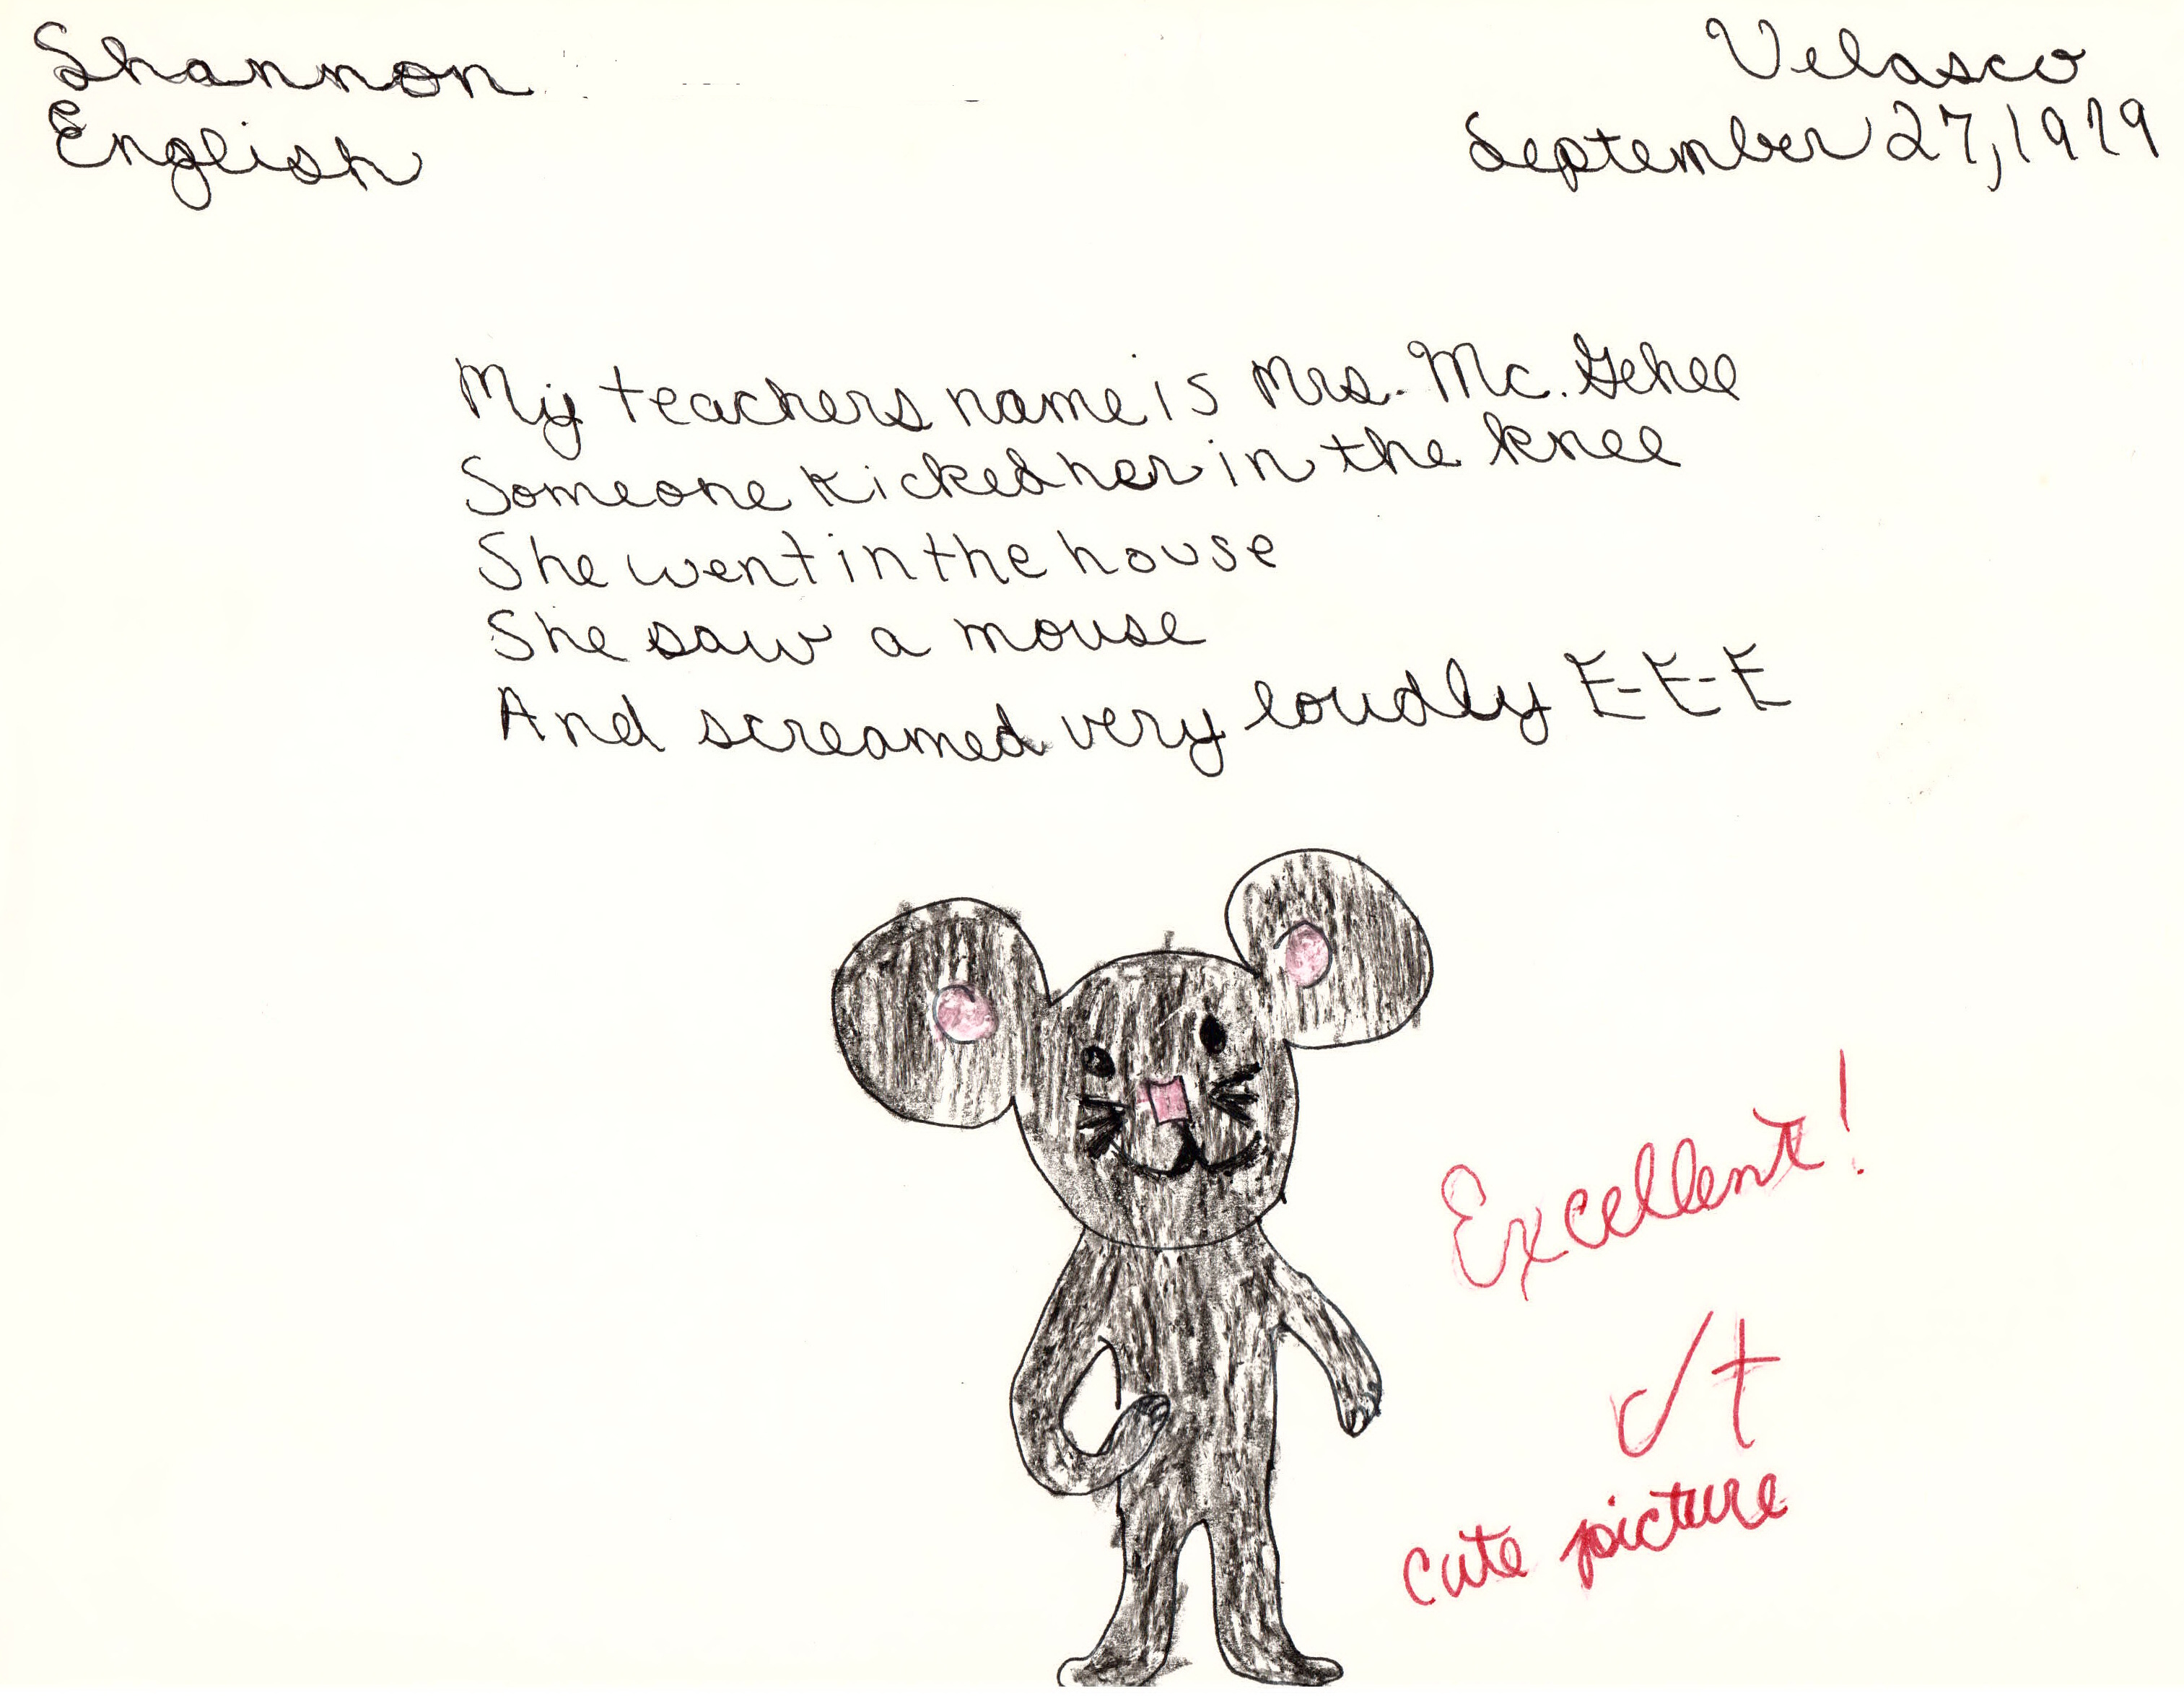 Shannon
Velasco
English
September 27, 1979
My teachers name is Mrs. Mc. Gehee
Someone kicked her in the knee
She went in the house
She saw a mouse
And screamed very loudly E-E-E
Excellent!
✓+
cute picture